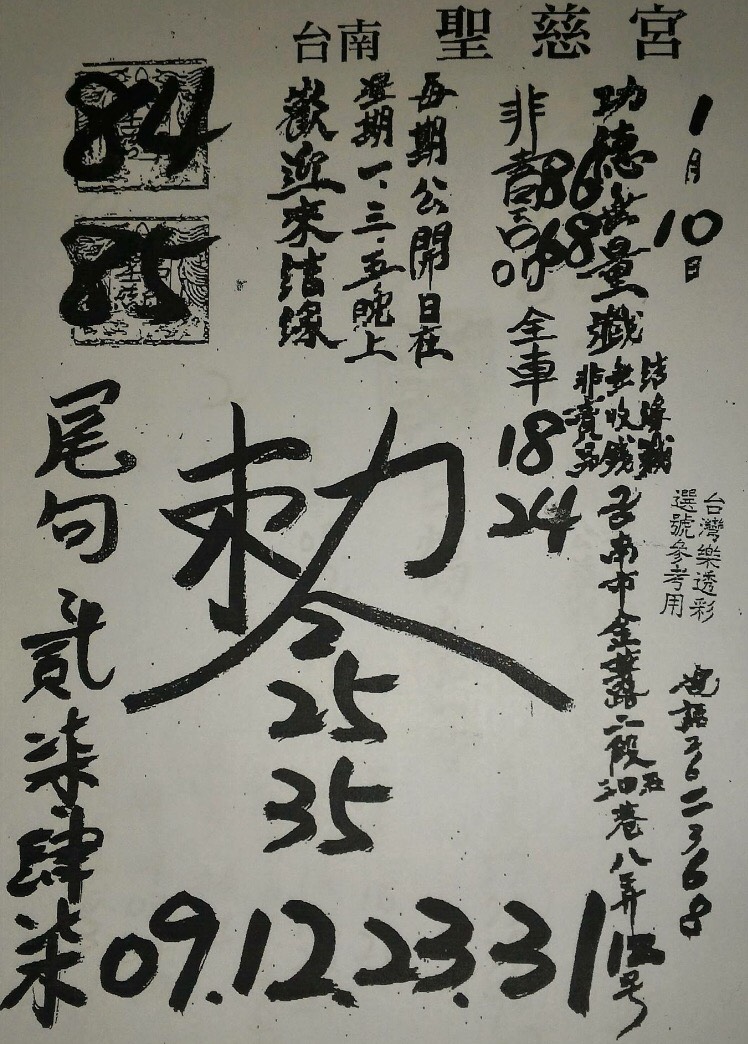 台南 聖慈宮
1月10日
功德無量籤
結緣籤
無收錢
非賣品
台灣樂透彩
選號參考用
非賣品
86
68
全車
18
24
每期公開日在
星期一、三、五晚上
歡迎來結緣
84
85
尾句 貳柒肆柒
敕
2
25
35
09.12.23.31
台南市金華路二段
巷八弄12号
電話2622368